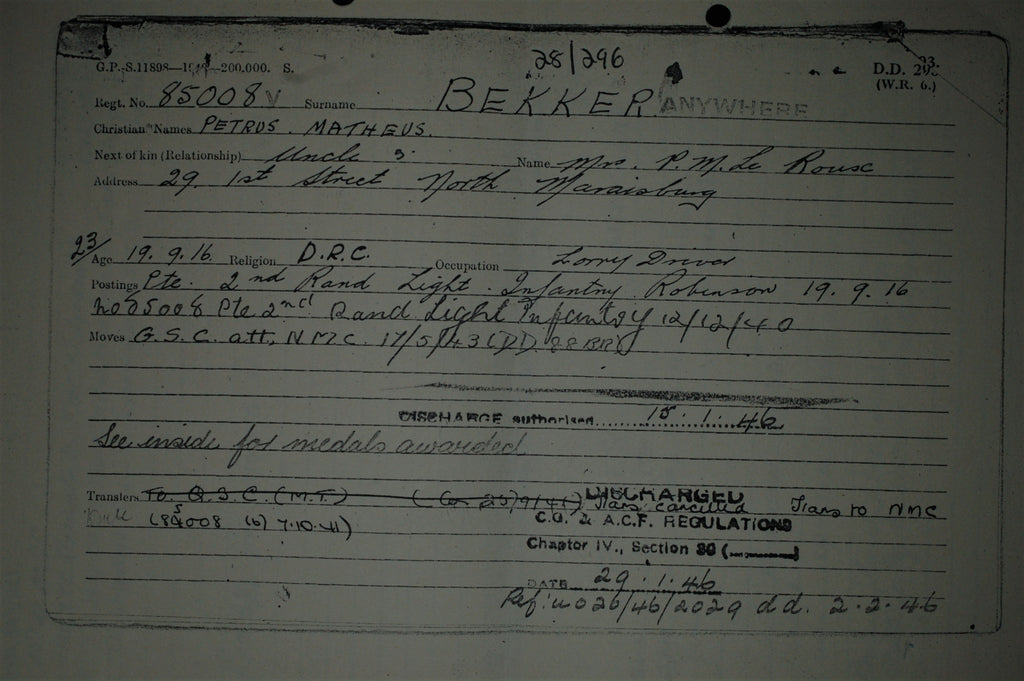 28/296
G.P.-S.11898—19 —200,000. S.
D.D. 293.
(W.R. 6.)
Regt. No. 85008 V Surname BEKKER ANYWHERE
Christian Names PETRUS. MATHEUS.
Next of kin (Relationship) Uncle Name Mrs. P. M. Le Roux
Address 29 1st Street North Maraisburg
23/ Age 19.9.16. Religion D.R.C. Occupation Lorry Driver
Postings Pte. 2nd Rand Light Infantry Robinson 19.9.16
No 85008 Pte 2nd Rand Light Infantry 12/12/40
Moves G.S.C. att. NMC. 17/5/43 (DD 88 BR)
DISCHARGE authorised 15.1.46
See inside for medals awarded
Transfers To Q.S.C. (M.T.) 25/9/41) Trans cancelled Trans to NMC
DISCHARGED
(85008 (6) 7.10.41)
C.G. & A.C.F. REGULATIONS
Chapter IV., Section 30 ( )
DATE 29.1.46
Ref: 26/46/2029 dd. 2.2.46